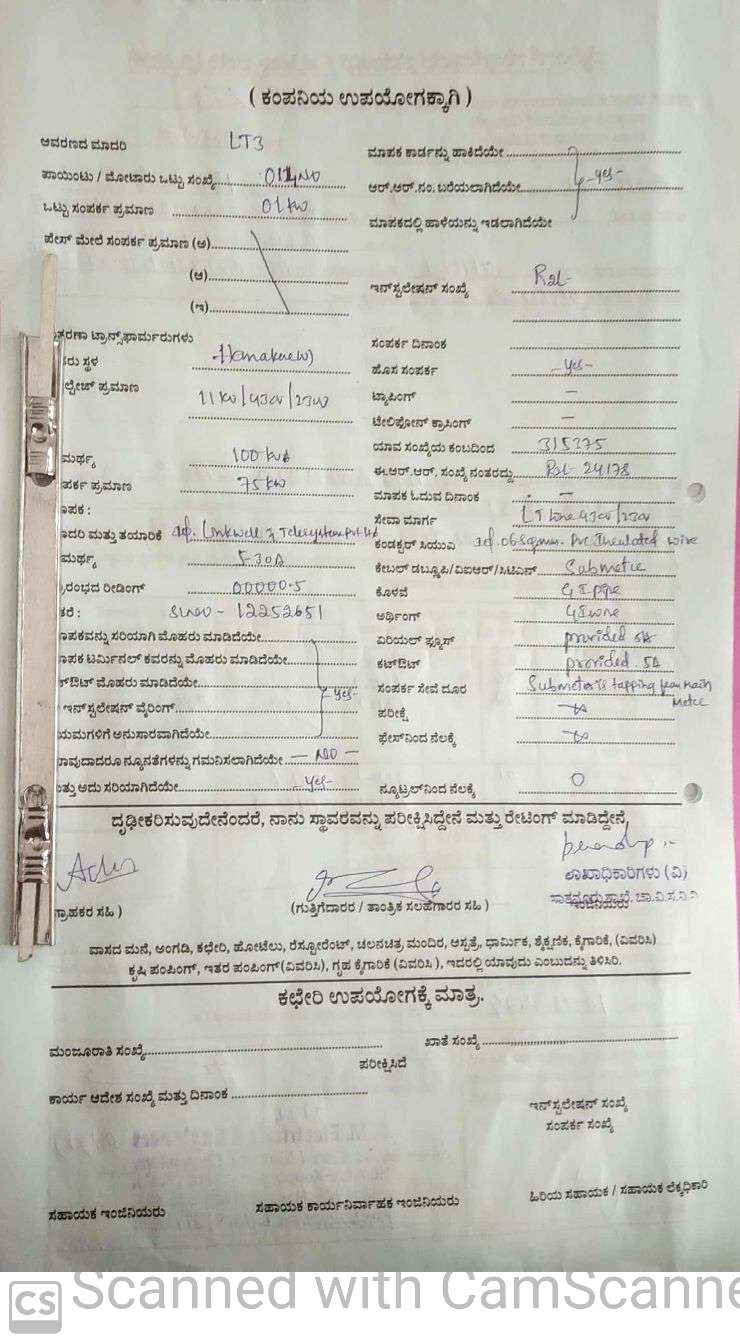 ( ಕಂಪನಿಯ ಉಪಯೋಗಕ್ಕಾಗಿ )
ಆವರಣದ ಮಾದರಿ LT3
ಪಾಯಿಂಟು / ಮೋಟಾರು ಒಟ್ಟು ಸಂಖ್ಯೆ
ಒಟ್ಟು ಸಂಪರ್ಕ ಪ್ರಮಾಣ 01 kw
ಫೇಸ್ ಮೇಲೆ ಸಂಪರ್ಕ ಪ್ರಮಾಣ (ಅ)
(ಆ)
(ಇ)
ತರಣಾ ಟ್ರಾನ್ಸ್‌ಫಾರ್ಮರುಗಳು
ರು ಸ್ಥಳ
ಲ್ಟೇಜ್ ಪ್ರಮಾಣ 11 kv/430v/230v
ಮರ್ಥ್ಯ 100 kva
ಪರ್ಕ ಪ್ರಮಾಣ 75 kw
ಾಪಕ :
ಾದರಿ ಮತ್ತು ತಯಾರಿಕೆ Linkwell Telesystem Pvt Ltd
ಮರ್ಥ್ಯ 5-30A
ರಂಭದ ರೀಡಿಂಗ್ 00000.5
ಕರೆ : Sl no - 12252651
ಾಪಕವನ್ನು ಸರಿಯಾಗಿ ಮೊಹರು ಮಾಡಿದೆಯೇ
ಾಪಕ ಟರ್ಮಿನಲ್ ಕವರನ್ನು ಮೊಹರು ಮಾಡಿದೆಯೇ
ಟ್‌ಔಟ್ ಮೊಹರು ಮಾಡಿದೆಯೇ -yes-
ಇನ್‌ಸ್ಟಲೇಷನ್ ವೈರಿಂಗ್
ಯಮಗಳಿಗೆ ಅನುಸಾರವಾಗಿದೆಯೇ
ಾವುದಾದರೂ ನ್ಯೂನತೆಗಳನ್ನು ಗಮನಿಸಲಾಗಿದೆಯೇ - NO -
ತ್ತು ಅದು ಸರಿಯಾಗಿದೆಯೇ -yes-
ಮಾಪಕ ಕಾರ್ಡನ್ನು ಹಾಕಿದೆಯೇ
ಆರ್.ಆರ್.ನಂ. ಬರೆಯಲಾಗಿದೆಯೇ -yes-
ಮಾಪಕದಲ್ಲಿ ಹಾಳೆಯನ್ನು ಇಡಲಾಗಿದೆಯೇ
ಇನ್‌ಸ್ಟಲೇಷನ್ ಸಂಖ್ಯೆ
ಸಂಪರ್ಕ ದಿನಾಂಕ
ಹೊಸ ಸಂಪರ್ಕ -yes-
ಟ್ಯಾಪಿಂಗ್ -
ಟೆಲಿಫೋನ್ ಕ್ರಾಸಿಂಗ್ -
ಯಾವ ಸಂಖ್ಯೆಯ ಕಂಬದಿಂದ 315375
ಈ.ಆರ್.ಆರ್. ಸಂಖ್ಯೆ ನಂತರದ್ದು 24178
ಮಾಪಕ ಓದುವ ದಿನಾಂಕ -
ಸೇವಾ ಮಾರ್ಗ LT Line 430v/230v
ಕಂಡಕ್ಟರ್ ಸಿಯುವಿ 06 sqmm. Pvc Insulated wire
ಕೇಬಲ್ ಡಬ್ಲೂಪಿ/ವಿಐಆರ್/ಸಿಟಿಎಸ್ Submeter
ಕೊಳವೆ GI pipe
ಅರ್ಥಿಂಗ್ GI wire
ಏರಿಯಲ್ ಫ್ಯೂಸ್ provided 5A
ಕಟ್‌ಔಟ್ provided 5A
ಸಂಪರ್ಕ ಸೇವೆ ದೂರ Submeter is tapping from main Meter
ಪರೀಕ್ಷೆ
ಫೇಸ್‌ನಿಂದ ನೆಲಕ್ಕೆ
ನ್ಯೂಟ್ರಲ್‌ನಿಂದ ನೆಲಕ್ಕೆ 0
ದೃಢೀಕರಿಸುವುದೇನೆಂದರೆ, ನಾನು ಸ್ಥಾವರವನ್ನು ಪರೀಕ್ಷಿಸಿದ್ದೇನೆ ಮತ್ತು ರೇಟಿಂಗ್ ಮಾಡಿದ್ದೇನೆ.
ಗ್ರಾಹಕರ ಸಹಿ )
(ಗುತ್ತಿಗೆದಾರರ / ತಾಂತ್ರಿಕ ಸಲಹೆಗಾರರ ಸಹಿ )
ಶಾಖಾಧಿಕಾರಿಗಳು (ವಿ)
ಸಾತನೂರು ಶಾಖೆ, ಚಾ.ವಿ.ಸ.ನಿ.ನಿ
ಇಂಜಿನಿಯರು
ವಾಸದ ಮನೆ, ಅಂಗಡಿ, ಕಛೇರಿ, ಹೋಟೆಲು, ರೆಸ್ಟೋರೆಂಟ್, ಚಲನಚಿತ್ರ ಮಂದಿರ, ಆಸ್ಪತ್ರೆ, ಧಾರ್ಮಿಕ, ಶೈಕ್ಷಣಿಕ, ಕೈಗಾರಿಕೆ, (ವಿವರಿಸಿ)
ಕೃಷಿ ಪಂಪಿಂಗ್, ಇತರ ಪಂಪಿಂಗ್ (ವಿವರಿಸಿ), ಗೃಹ ಕೈಗಾರಿಕೆ (ವಿವರಿಸಿ ), ಇದರಲ್ಲಿ ಯಾವುದು ಎಂಬುದನ್ನು ತಿಳಿಸಿರಿ.
ಕಛೇರಿ ಉಪಯೋಗಕ್ಕೆ ಮಾತ್ರ.
ಮಂಜೂರಾತಿ ಸಂಖ್ಯೆ ಖಾತೆ ಸಂಖ್ಯೆ
ಪರೀಕ್ಷಿಸಿದೆ
ಕಾರ್ಯ ಆದೇಶ ಸಂಖ್ಯೆ ಮತ್ತು ದಿನಾಂಕ
ಇನ್‌ಸ್ಟಲೇಷನ್ ಸಂಖ್ಯೆ
ಸಂಪರ್ಕ ಸಂಖ್ಯೆ
ಸಹಾಯಕ ಇಂಜಿನಿಯರು ಸಹಾಯಕ ಕಾರ್ಯನಿರ್ವಾಹಕ ಇಂಜಿನಿಯರು ಹಿರಿಯ ಸಹಾಯಕ / ಸಹಾಯಕ ಲೆಕ್ಕಾಧಿಕಾರಿ
CS Scanned with CamScanne